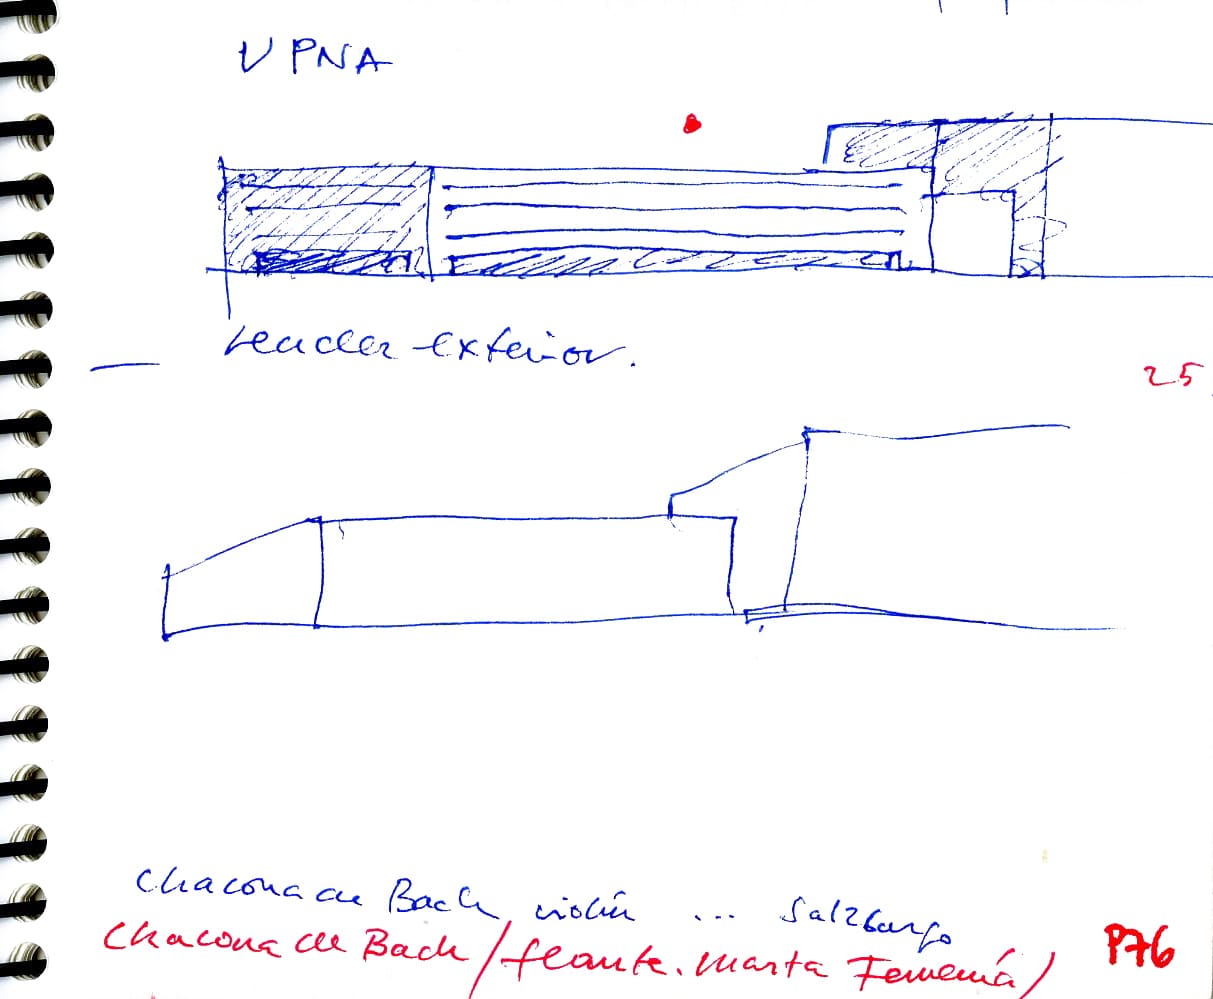 UPNA
tender exterior.
25
Chacona de Bach violín ... Salzburgo
Chacona de Bach / flauta. Marta Femenía /
P76